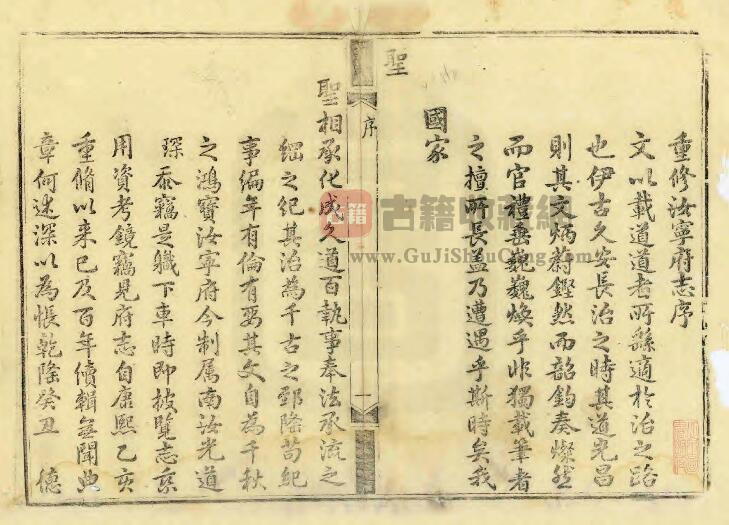 重修汝寧府志序
文以載道道者所繇適於治之路
也伊古久安長治之時其道光昌
則其文炳蔚鏗然而韶鈞奏燦然
而官禮垂巍巍煥乎非獨載筆者
之擅所長蓋乃遭遇乎斯時矣我
國家
聖
序
一
聖相承化成久道百執事奉法承流之
細之紀其治為千古之郅隆苟紀
事編年有倫有要其文自為千秋
之鴻寶汝寧府今制属南汝光道
琛忝竊是職下車時即披覽志乘
用資考鏡竊見府志自康熙乙亥
重脩以来已及百年續輯無聞典
章何述深以為悵乾隆癸丑 德
古籍
古籍收藏網
www.GuJiShouCang.com